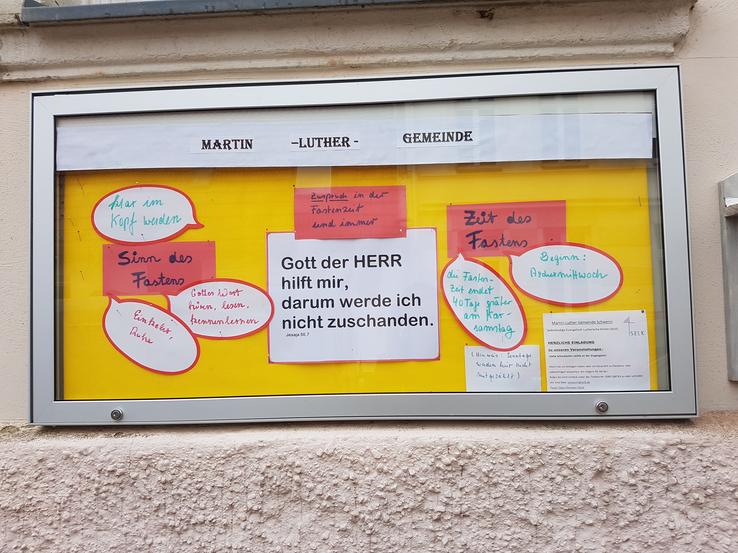 MARTIN -LUTHER- GEMEINDE
klar im
Kopf werden
Sinn des
Fastens
Gottes Wort
hören, lesen,
kennenlernen
Einkehr,
Ruhe
Zuspruch in der
Fastenzeit
und immer
Gott der HERR
hilft mir,
darum werde ich
nicht zuschanden.
Jesaja 50,7
Zeit des
Fastens
Beginn:
Aschermittwoch
die Fasten-
Zeit endet
40 Tage später
am Kar-
samstag
(Hinweis: Sonntage
werden hier nicht
mitgezählt)
Martin-Luther-Gemeinde Schwerin
SELK
HERZLICHE EINLADUNG
zu unseren Veranstaltungen.